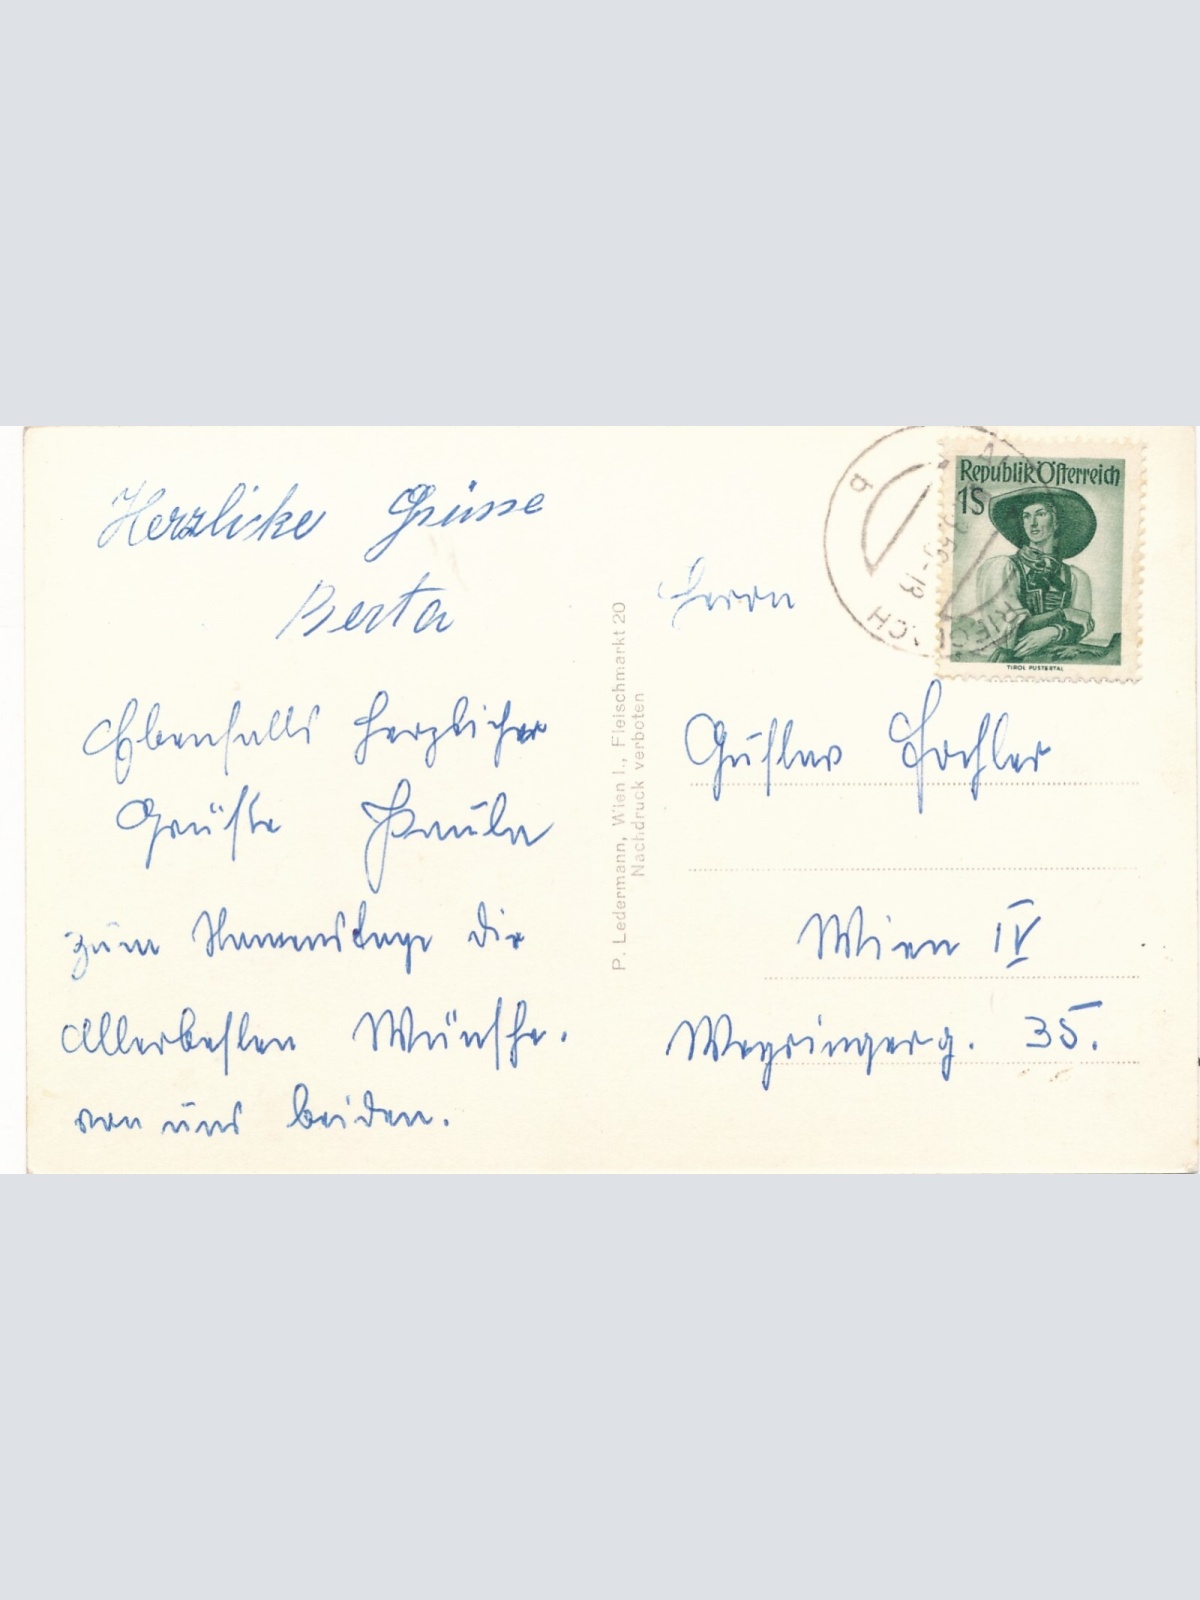 Herzlicke Grüsse
Berta
Ebenfalls herzlicher
Grüße Paula
zum Namenstage die
Allerbesten Wünsche.
von uns beiden.
P. Ledermann, Wien I., Fleischmarkt 20
Nachdruck verboten
b
Republik Österreich
1S
TIROL PUSTERTAL
Herrn
Gustav
Wien IV
Weyringerg. 35.